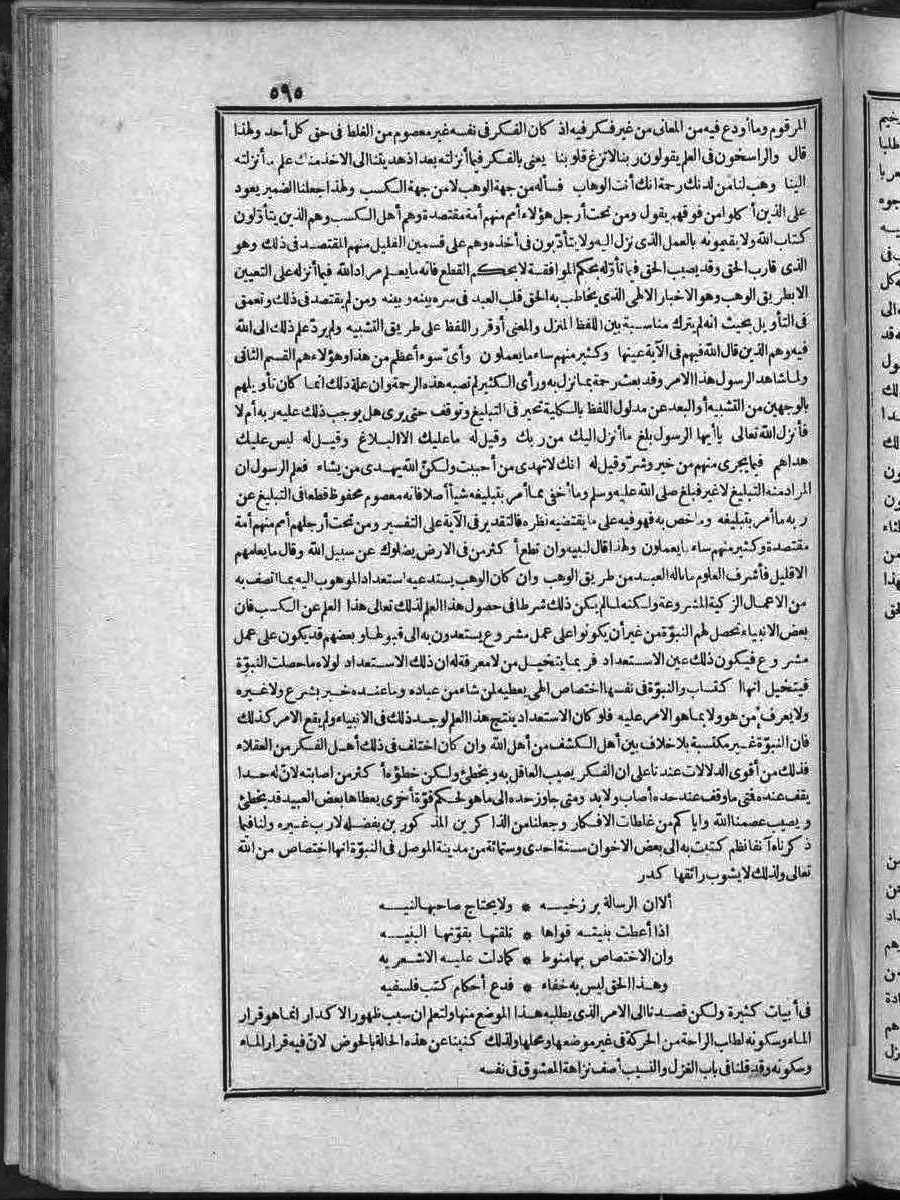 ٥٩٥
المرقوم وما أودع فيه من المعانى من غير فكر فيه اذ كان الفكر فى نفسه غير معصوم من الغلط فى حق كل أحد ولهذا
قال والراسخون فى العلم يقولون ربنا لا تزغ قلوبنا يعنى بالفكر فيما أنزلته بعد اذ هديتنا الى الاخذ منك علم ما أنزلته
الينا وهب لنا من لدنك رحمة انك أنت الوهاب فسأله من جهة الوهب لا من جهة الكسب ولهذا جعلنا الضمير يعود
على الذين أكلوا من فوقهم يقول ومن تحت أرجل هؤلاء أمم منهم أمة مقتصدة وهم أهل الكسب وهم الذين يتأوّلون
كتاب الله ولا يقيمونه بالعمل الذى نزل اليه ولا يتأدّبون فى أخذه وهم على قسمين القليل منهم المقتصد فى ذلك وهو
الذى قارب الحق وقد يصيب الحق فيما تأوّله بحكم الموافقة لا بحكم القطع فانه ما يعلم مراد الله فيما أنزله على التعيين
الا بطريق الوهب وهو الاخبار الالهى الذى يخاطب به الحق قلب العبد فى سره بينه وبينه ومن لم يقتصد فى ذلك وتعمق
فى التأويل بحيث انه لم يترك مناسبة بين اللفظ المنزل والمعنى أو قرر اللفظ على طريق التشبيه ولم يردّ علم ذلك الى الله
فيه وهم الذين قال الله فيهم فى الآية عينها وكثير منهم ساء ما يعملون وأىّ سوء أعظم من هذا وهؤلاء هم القسم الثانى
ولما شاهد الرسول هذا الامر وقد بعث رحمة بما نزل به ورأى الكثير لم تصبه هذه الرحمة وان علة ذلك انما كان تأويلهم
بالوجهين من التشبيه أو البعد عن مدلول اللفظ بالكلية تحير فى التبليغ وتوقف حتى يرى هل يوجب ذلك عليه ربه أم لا
فأنزل الله تعالى يا أيها الرسول بلغ ما أنزل اليك من ربك وقيل له ما عليك الا البلاغ وقيل له ليس عليك
هداهم فيما يجرى منهم من خير وشرّ وقيل له انك لا تهدى من أحببت ولكنّ الله يهدى من يشاء فعلم الرسول ان
المراد منه التبليغ لا غير فبلغ صلى الله عليه وسلم وما أخفى مما أمر بتبليغه شيأ أصلا فانه معصوم محفوظ قطعا فى التبليغ عن
ربه ما أمر بتبليغه وما خص به فهو فيه على ما يقتضيه نظره فالتقدير فى الآية على التفسير ومن تحت أرجلهم أمم منهم أمة
مقتصدة وكثير منهم ساء ما يعملون ولهذا قال لنبيه وان تطع أكثر من فى الارض يضلوك عن سبيل الله وقال ما يعلمهم
الا قليل فأشرف العلوم ما ناله العبد من طريق الوهب وان كان الوهب يستدعيه استعداد الموهوب اليه بما اتصف به
من الاعمال الزكية المشروعة ولكنه لما لم يكن ذلك شرطا فى حصول هذا العلم لذلك تعالى هذا العلم عن الكسب فان
بعض الانبياء تحصل لهم النبوّة من غير أن يكونوا على عمل مشروع يستعدون به الى قبولها وبعضهم قد يكون على عمل
مشروع فيكون ذلك عين الاستعداد فربما يتخيل من لا معرفة له ان ذلك الاستعداد لولاه ما حصلت النبوّة
فيتخيل انها اكتساب والنبوّة فى نفسها اختصاص الهى يعطيه لمن شاء من عباده وما عنده خبر بشرع ولا غيره
ولا يعرف من هو ولا بما هو الامر عليه فلو كان الاستعداد ينتج هذا العلم لوجد ذلك فى الانبياء ولم يقع الامر كذلك
فان النبوّة غير مكتسبة بلا خلاف بين أهل الكشف من أهل الله وان كان اختلف فى ذلك أهل الفكر من العقلاء
فذلك من أقوى الدلالات عندنا على ان الفكر يصيب العاقل به ويخطئ ولكن خطؤه أكثر من اصابته لانّ له حدا
يقف عنده فمتى ما وقف عند حده أصاب ولا بد ومتى جاوز حده الى ما هو لحكم قوّة أخرى يعطاها بعض العبيد قد يخطئ
ويصيب عصمنا الله واياكم من غلطات الافكار وجعلنا من الذاكرين المذكورين بفضله لا رب غيره ولنا فيما
ذكرناه آنفا نظم كتبت به الى بعض الاخوان سنة احدى وستمائة من مدينة الموصل فى النبوّة انها اختصاص من الله
تعالى ولذلك لا يشوب رائقها كدر
ألا ان الرسالة برزخيه * ولا يحتاج صاحبها لنيه
اذا أعطت بنيته قواها * تلقتها بقوّتها البنيه
وان الاختصاص بها منوط * كما دلت عليه الاشعريه
وهذا الحق ليس به خفاء * فدع أحكام كتب فلسفيه
فى أبيات كثيرة ولكن قصدنا الى الامر الذى يطلبه هذا الموضع منها ولتعلم ان سبب ظهور الاكدار انما هو قرار
الماء وسكونه لطلب الراحة من الحركة فى غير موضعها ومحلها ولذلك كنينا عن هذه الحالة بالحوض لانّ فيه قرار الماء
وسكونه وقد قلنا فى باب الغزل والنسيب أصف نزاهة المعشوق فى نفسه